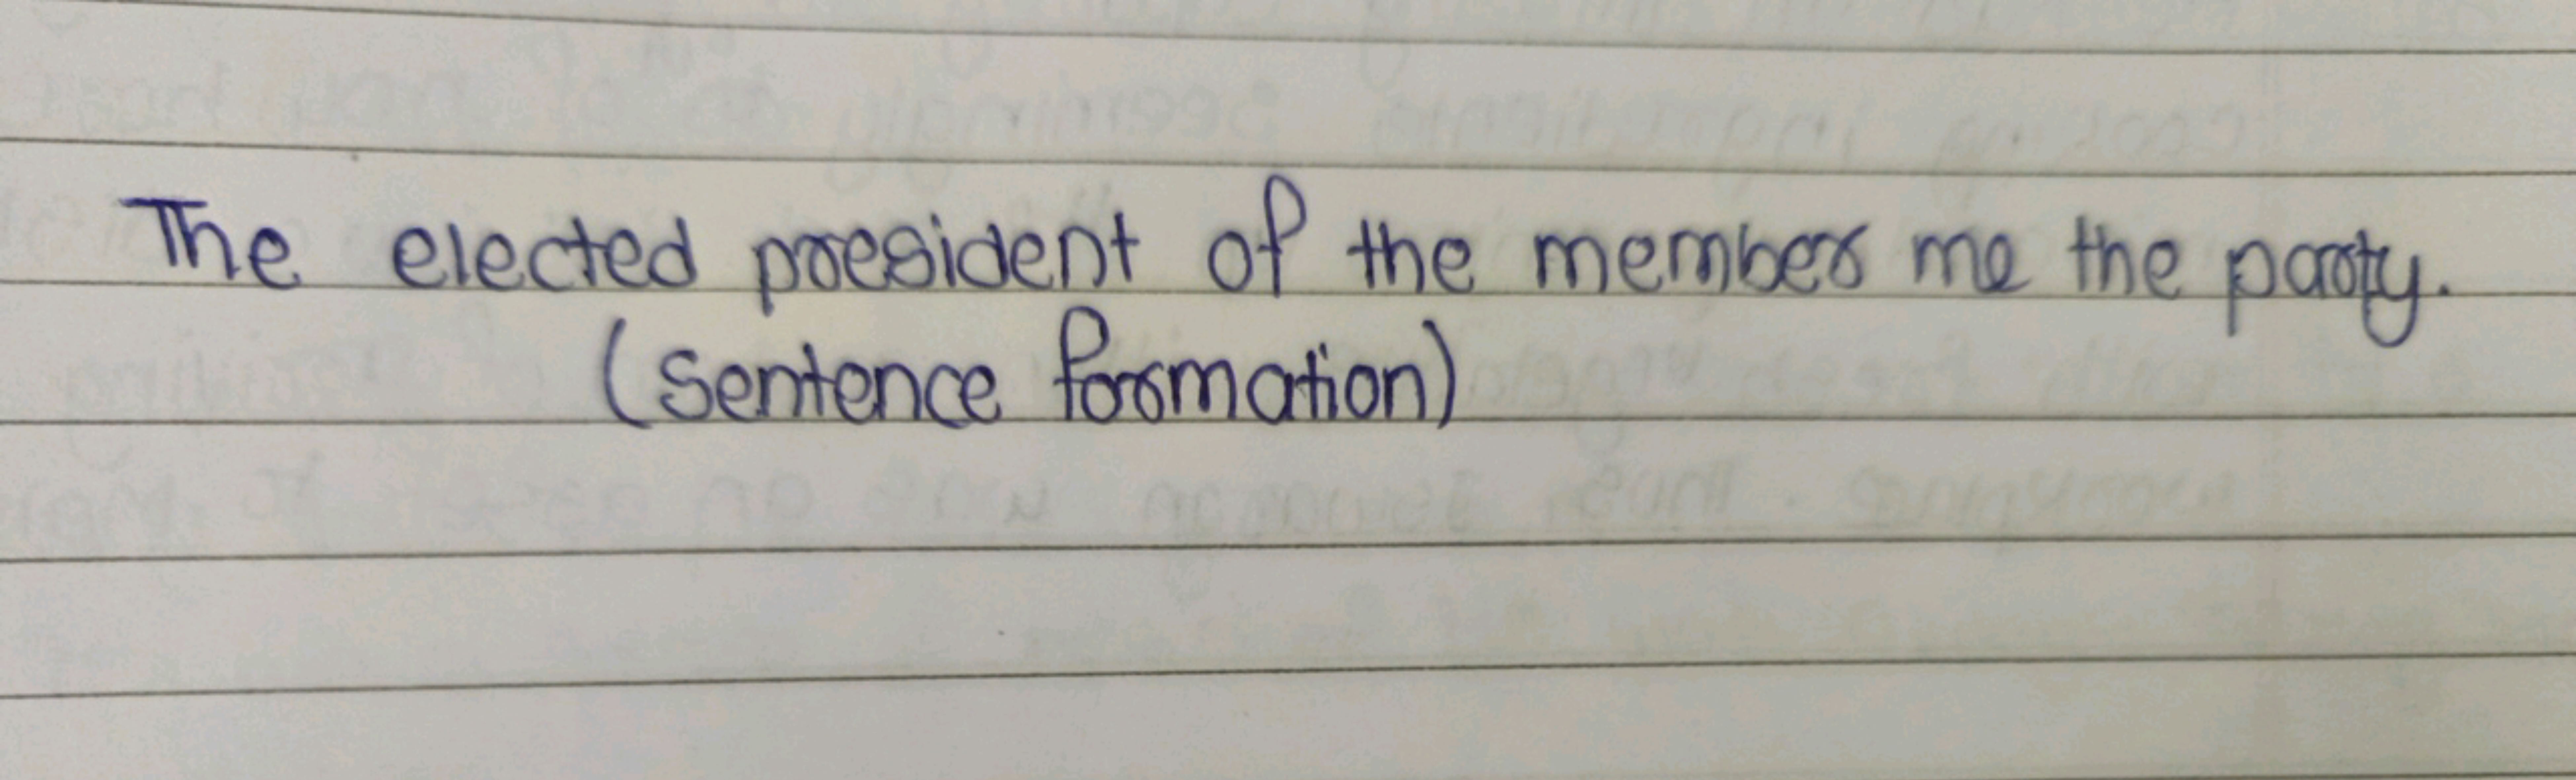 The elected president of the member me the party.
(Sentence formation)